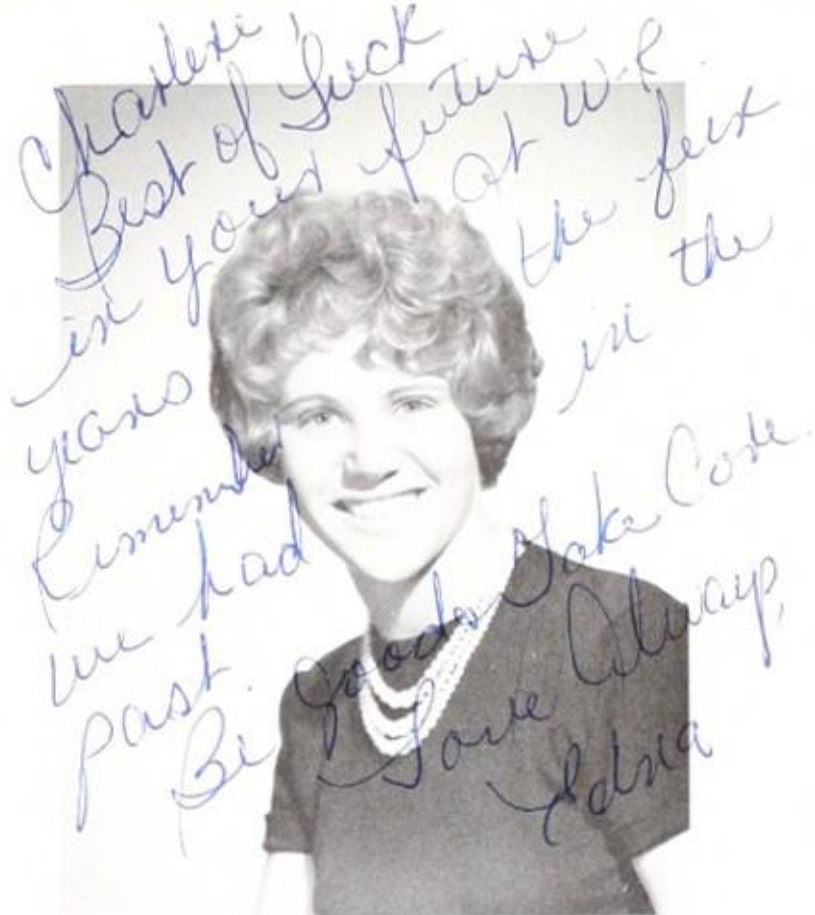 Charlene,
Best of Luck
in your future
years at W.P.
Remember the fun
we had in the
past.
Be good. Take Care.
Love Always,
Edna